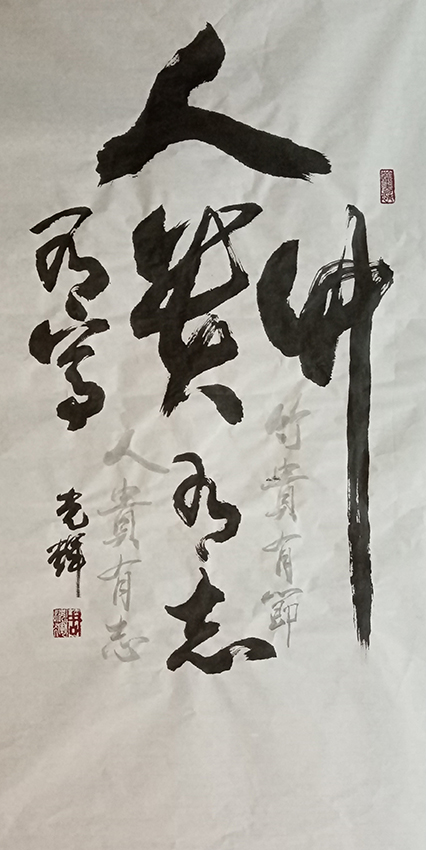 竹
竹貴有節
人貴有志
人貴有志
有節
光輝